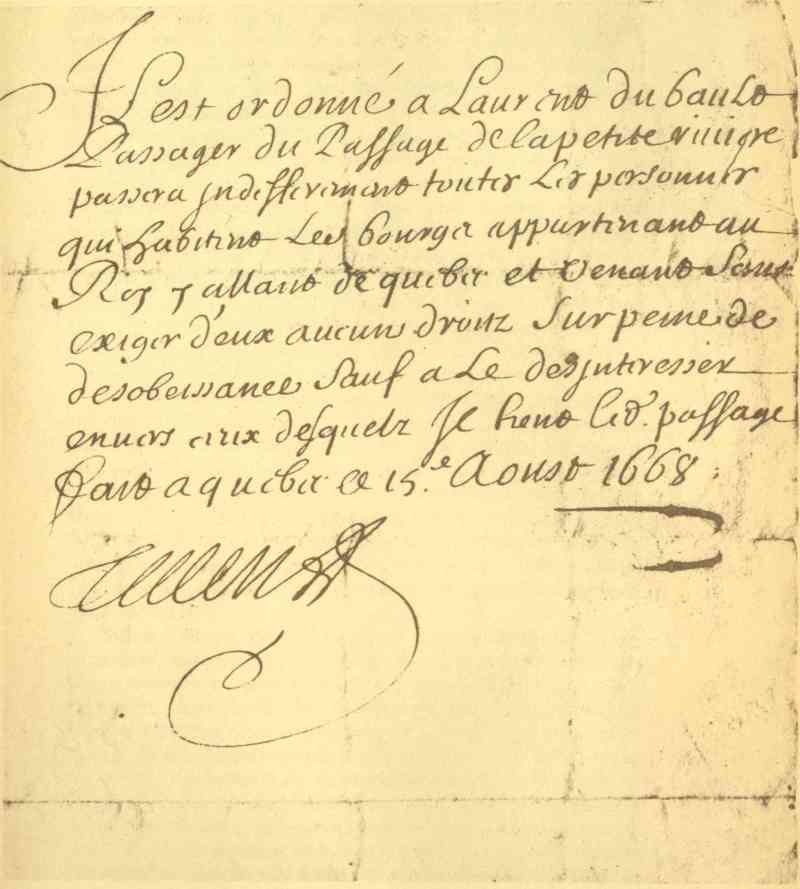 Il est ordonné a Laurent du bault
Passager du Passage de la petite riuiere
passera jndifferement toutes les personnes
qui habitent Les bourgs appartenant au
Roy y allant de quebec et venant Sans
exiger d'eux aucuns droitz Sur peine de
desobeissance Sauf a Le desjnteresser
enuers ceux desquelz Jl tient led. passage
fait a quebec ce 15.e Aoust 1668.
Talon